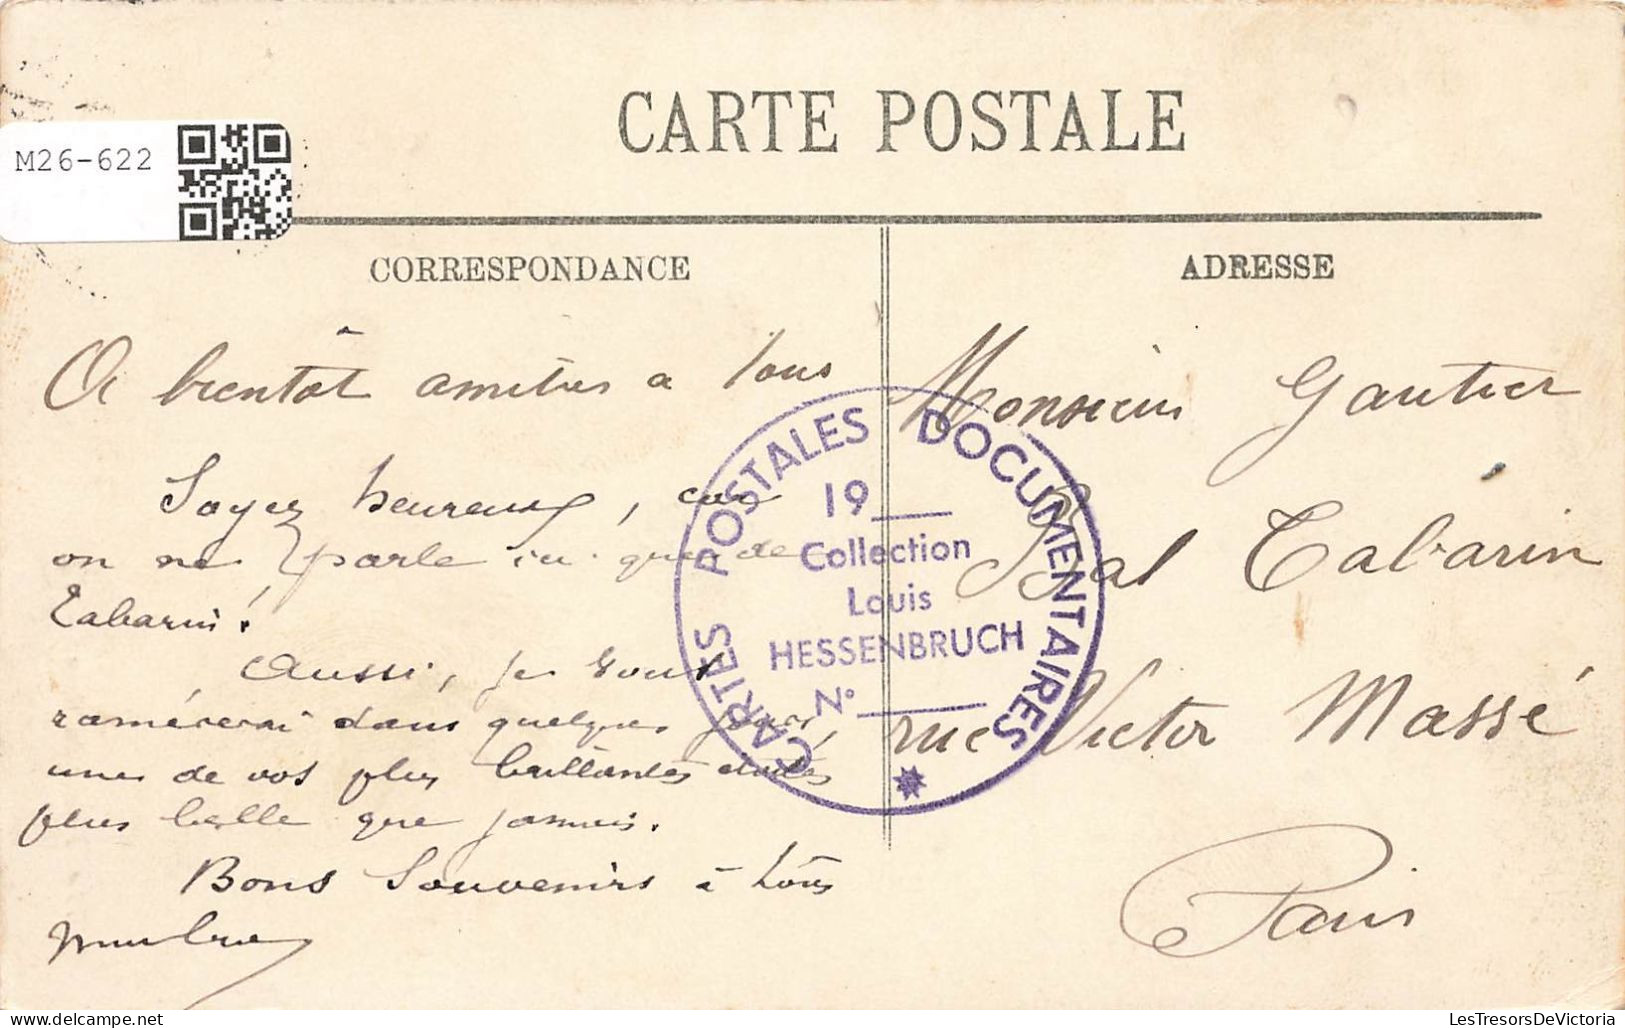 M26-622
CARTE POSTALE
CORRESPONDANCE
ADRESSE
A bientôt amitiés a tous
Soyez heureux, car
on ne parle ici que de
Tabarin!
Aussi, je vous
ramènerai dans quelques jours,
une de vos plus brillantes étoiles
plus belle que jamais.
Bons Souvenirs à tous
Monsieur Gautier
Bal Tabarin
rue Victor Massé
Paris
CARTES POSTALES DOCUMENTAIRES
19
Collection
Louis
HESSENBRUCH
N°
LesTresorsDeVictoria